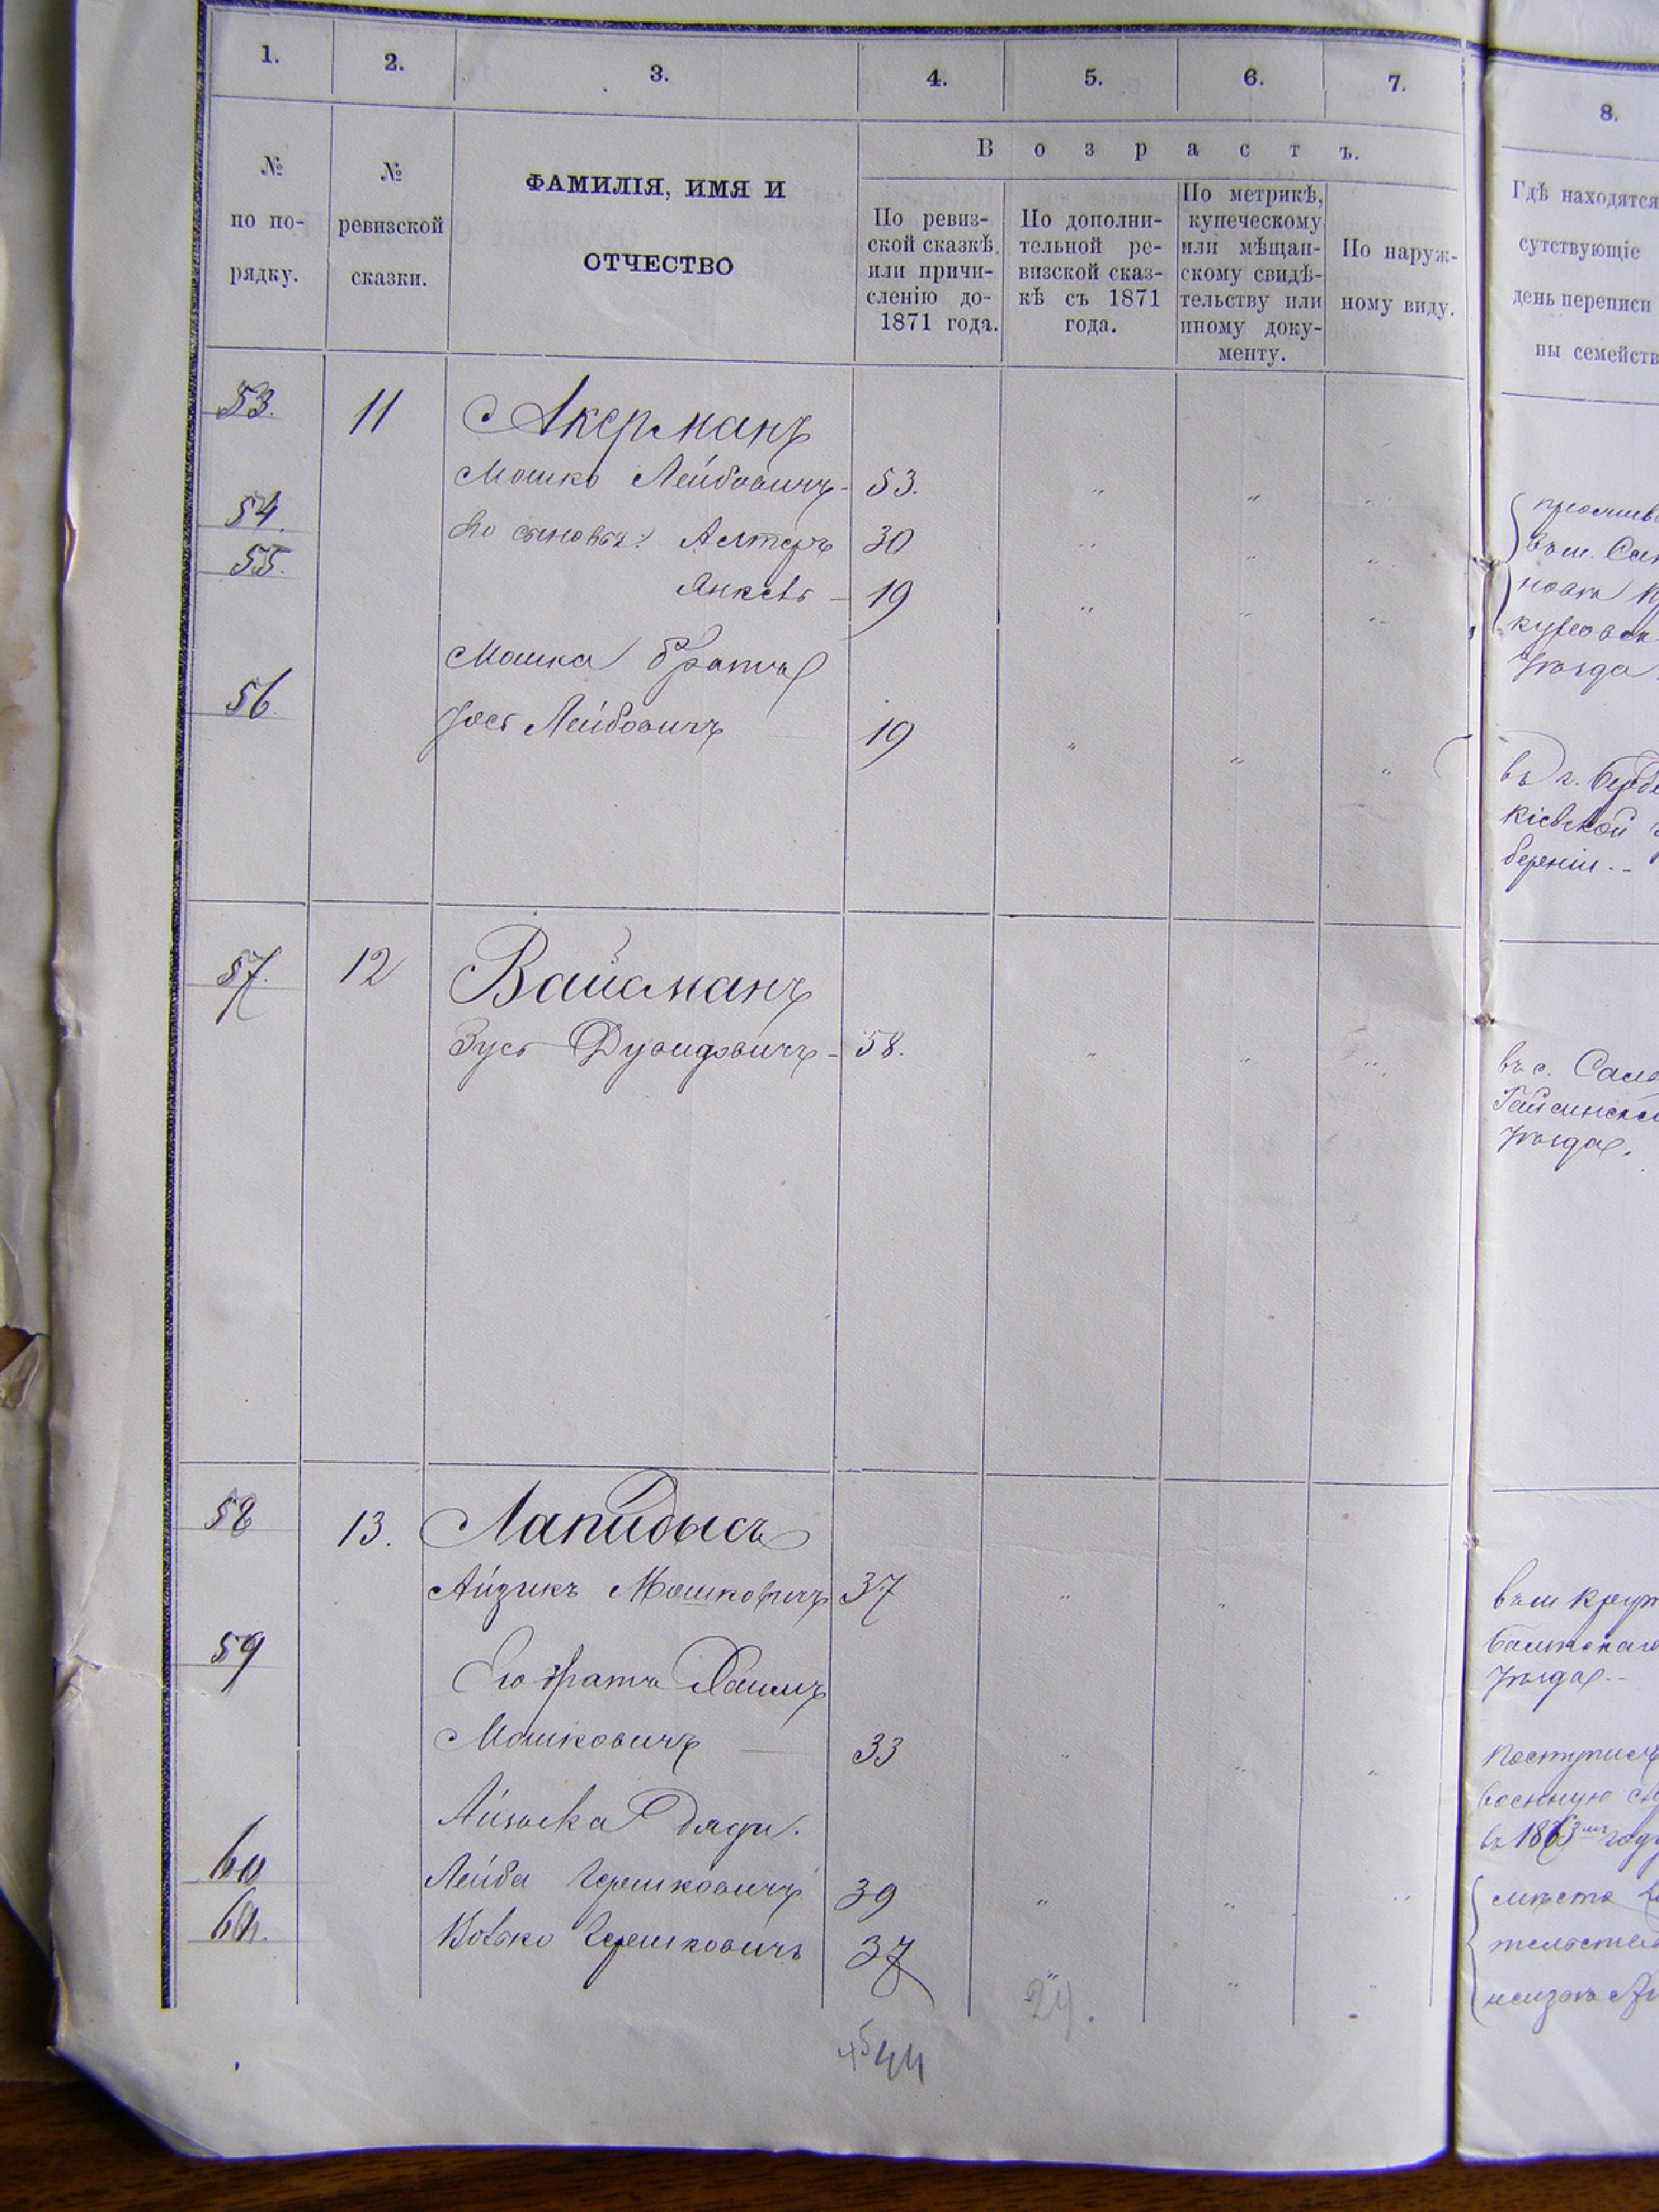 1.
2.
3.
4.
5.
6.
7.
8.
№
по по-
рядку.
№
ревизской
сказки.
ФАМИЛІЯ, ИМЯ И
ОТЧЕСТВО
Возрастъ.
По ревиз-
ской сказкѣ,
или причи-
сленію до-
1871 года.
По дополни-
тельной ре-
визской сказ-
кѣ съ 1871
года.
По метрикѣ,
купеческому
или мѣщан-
скому свидѣ-
тельству или
иному доку-
менту.
По наруж-
ному виду.
Гдѣ находятся
сутствующіе
день переписи
ны семейств
53. 11 Акерманъ
Мошко Лейбовичъ - 53. " " "
54. Его сыновья: Алтеръ 30 " " "
55. Янкель - 19 " " "
Мошка братъ
56. Лейбовичъ 19 " " "
въ г. Берди
Кіевской
берніи. -
57. 12 Вайсманъ
Зусь Дувидовичъ - 58. " " "
въ с.
Гайсинска
уѣзда.
58 13. Лапидысъ
Айзикъ Мошковичъ 37 " "
въ м.
Балтскаго
уѣзда. -
59 Его братъ Хаимъ
Мошковичъ 33 " " "
поступилъ
военную
въ 1863 году
Айзика дяди.
60 Лейба Гершковичъ 39 " " "
61. Вовко Гершковичъ 37 " " "
мѣсто
тельства
неизвѣ
24.
45 44